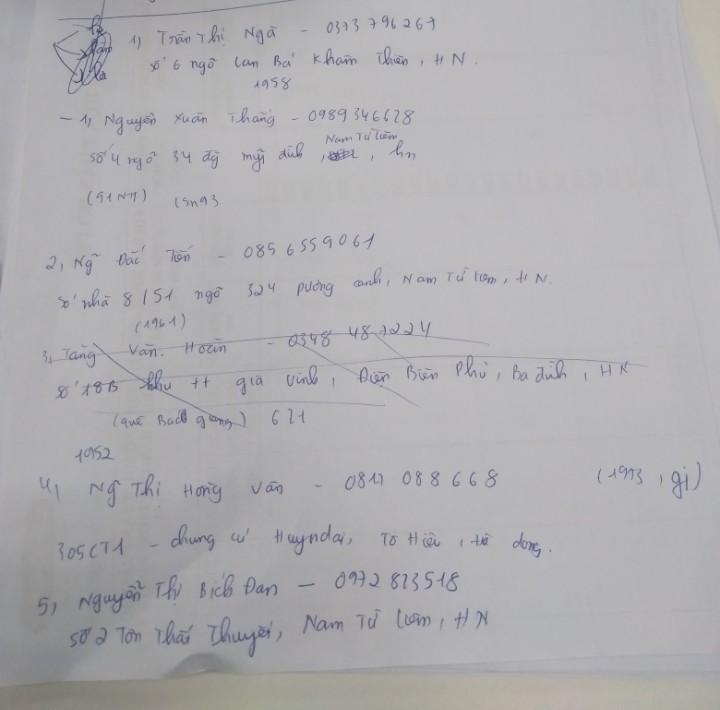 1) Trần Thị Ngà - 0373 796267
số 6 ngõ Lan Bá Khâm Thiên, HN.
1958
- 1, Nguyễn Xuân Thắng - 0989346628
Nam Từ Liêm
số 4 ngõ 34 đg mỹ đình, , hn
2, Ng Đắc Tiến - 0856559061
số nhà 8/51 ngõ 324 pương canh, Nam Từ Liêm, HN.
(1961)
3, Tăng Văn. Hoàn - 0348 487224
số 18B khu tt gia vinh, Điện Biên Phủ, Ba đình, HN
(quê Bắc giang) 621
1952
4, Ng Thị Hồng Vân - 0817 088668 (1973, gị)
305CT1 - chung cư Huyndai, Tô Hiệu, hà đông.
5, Nguyễn Thị Bích Đan - 0972 823518
số 2 Tôn Thất Thuyết, Nam Từ Liêm, HN